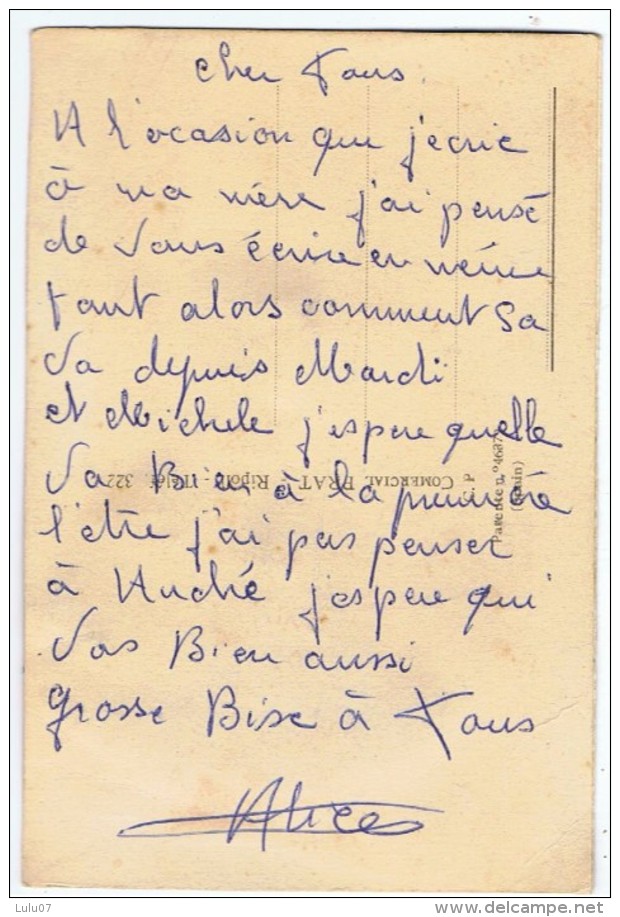 cher Tous.
A l'ocasion que j'ecric
à ma mère j'ai pensé
de vous écrire en même
tant alors comment sa
va depuis Mardi
et Michele j'espere quelle
va Bien à la premiére
l'etre j'ai pas penser
à André j'espere qui
vas Bien aussi
grosse Bise à Tous
Alice
COMERCIAL PRAT - Ripoll - Teléf. 322
Patente n.º 4687
(Spain)
Lulu07
www.delcampe.net